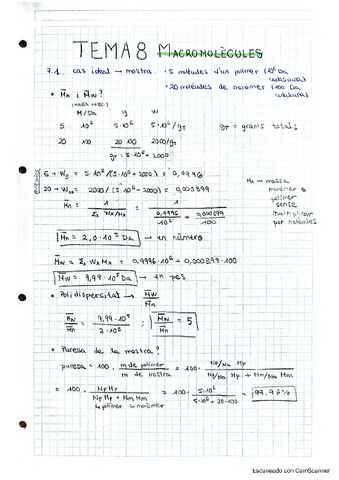 TEMA 8 MACROMOLÈCULES
7.1. cas ideal → mostra: • 5 mòlecules d'un polímer (10⁶ Da cadascuna)
• 20 mòlecules de monòmer (100 Da cadascuna)
• M̄n i M̄w?
(massa molec.)
M/Da g w
5 10⁶ 5·10⁶ 5·10⁶/gT gT = grams totals
20 100 20·100 2000/gT
gT = 5·10⁶ + 2000
5 → W5 = 5·10⁶/(5·10⁶ + 2000) = 0,9996
20 → W20 = 2000/(5·10⁶ + 2000) = 0,000399
Mx → massa monòmer o polímer sense multiplicar per mòlecules
M̄n = 1 / Σx Wx/Mx = 1 / 0,9996/10⁶ + 0,000399/100
M̄n = 2,0·10⁵ Da → en número
M̄w = Σx Wx Mx = 0,9996·10⁶ + 0,000399·100
M̄w = 9,99·10⁵ Da → en pes
• Polidispersitat → M̄w/M̄n
M̄w/M̄n = 9,99·10⁵ / 2·10⁵ ; M̄w/M̄n = 5
• Puresa de la mostra?
puresa = 100 · m de polímer / m de mostra = 100 · Np/NA Mp / Np/NA Mp + Nm/NA Mm
= 100 · Np Mp / Np Mp + Nm Mm = 100 · 5·10⁶ / 5·10⁶ + 20·100 = 99,96%
↳ polímer ↳ monòmer
Escaneado con CamScanner